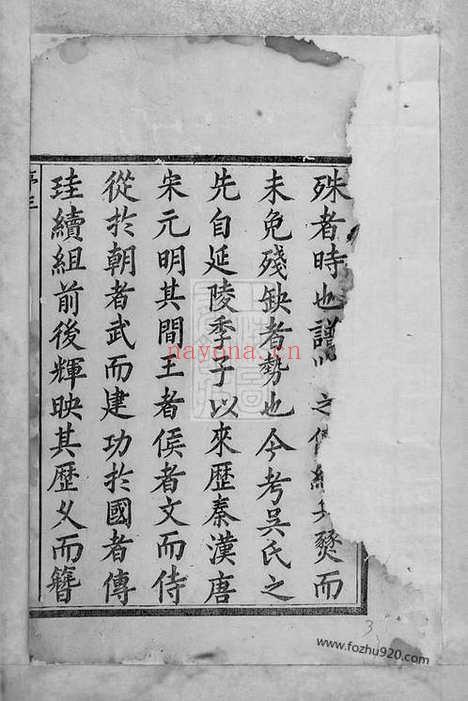 殊者時也譜以之燹而
未免殘缺者勢也今考吳氏之
先自延陵季子以來歷秦漢唐
宋元明其間王者侯者文而侍
從於朝者武而建功於國者傳
珪續組前後輝映其歷久而簪
序三
nayona.cn
3
www.fozhu920.com